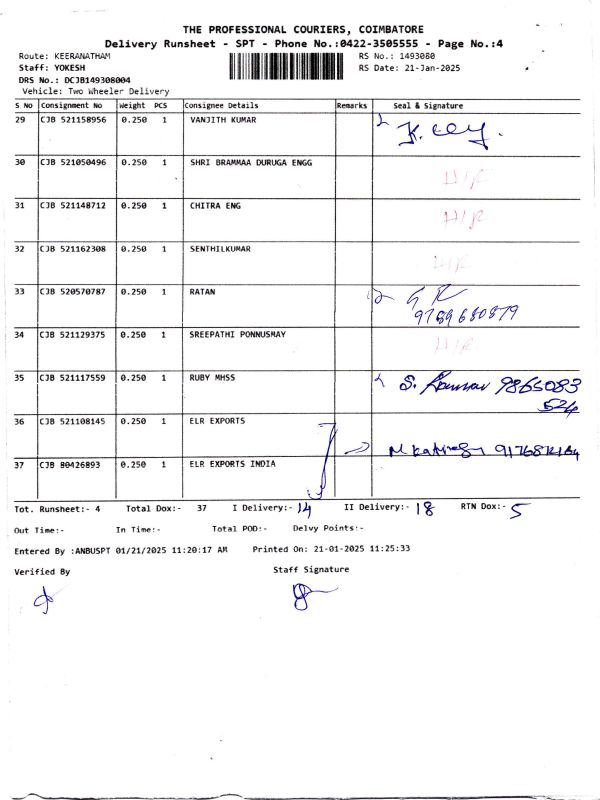 THE PROFESSIONAL COURIERS, COIMBATORE
Delivery Runsheet - SPT - Phone No.:0422-3505555 - Page No.:4
Route: KEERANATHAM RS No.: 1493080
Staff: YOKESH RS Date: 21-Jan-2025
DRS No.: DCJB149308004
Vehicle: Two Wheeler Delivery
S No Consignment No Weight PCS Consignee Details Remarks Seal & Signature
29 CJB 521158956 0.250 1 VANJITH KUMAR
30 CJB 521050496 0.250 1 SHRI BRAMMAA DURUGA ENGG
31 CJB 521148712 0.250 1 CHITRA ENG
32 CJB 521162308 0.250 1 SENTHILKUMAR
33 CJB 520570787 0.250 1 RATAN
9789680879
34 CJB 521129375 0.250 1 SREEPATHI PONNUSMAY
35 CJB 521117559 0.250 1 RUBY MHSS S. 9865083
524
36 CJB 521108145 0.250 1 ELR EXPORTS
37 CJB 80426893 0.250 1 ELR EXPORTS INDIA
Tot. Runsheet:- 4 Total Dox:- 37 I Delivery:- 14 II Delivery:- 18 RTN Dox:- 5
Out Time:- In Time:- Total POD:- Delvy Points:-
Entered By :ANBUSPT 01/21/2025 11:20:17 AM Printed On: 21-01-2025 11:25:33
Verified By Staff Signature